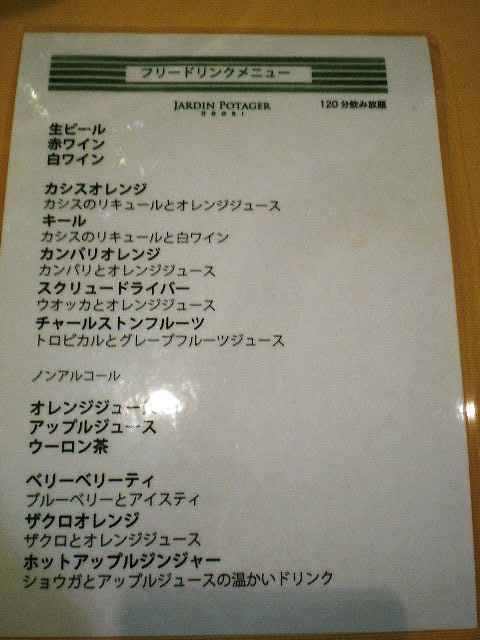 フリードリンクメニュー
JARDIN POTAGER
ODORI
120分飲み放題
生ビール
赤ワイン
白ワイン
カシスオレンジ
カシスのリキュールとオレンジジュース
キール
カシスのリキュールと白ワイン
カンパリオレンジ
カンパリとオレンジジュース
スクリュードライバー
ウオッカとオレンジジュース
チャールストンフルーツ
トロピカルとグレープフルーツジュース
ノンアルコール
オレンジジュース
アップルジュース
ウーロン茶
ベリーベリーティ
ブルーベリーとアイスティ
ザクロオレンジ
ザクロとオレンジジュース
ホットアップルジンジャー
ショウガとアップルジュースの温かいドリンク